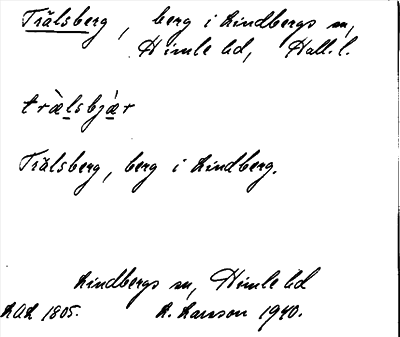 Trälsberg, berg i Lindbergs sn,
Himle hd, Hall. l.
trælsbjær
Trälsberg, berg i Lindberg.
Lindbergs sn, Himle hd
LAL 1805. L. Larsson 1940.